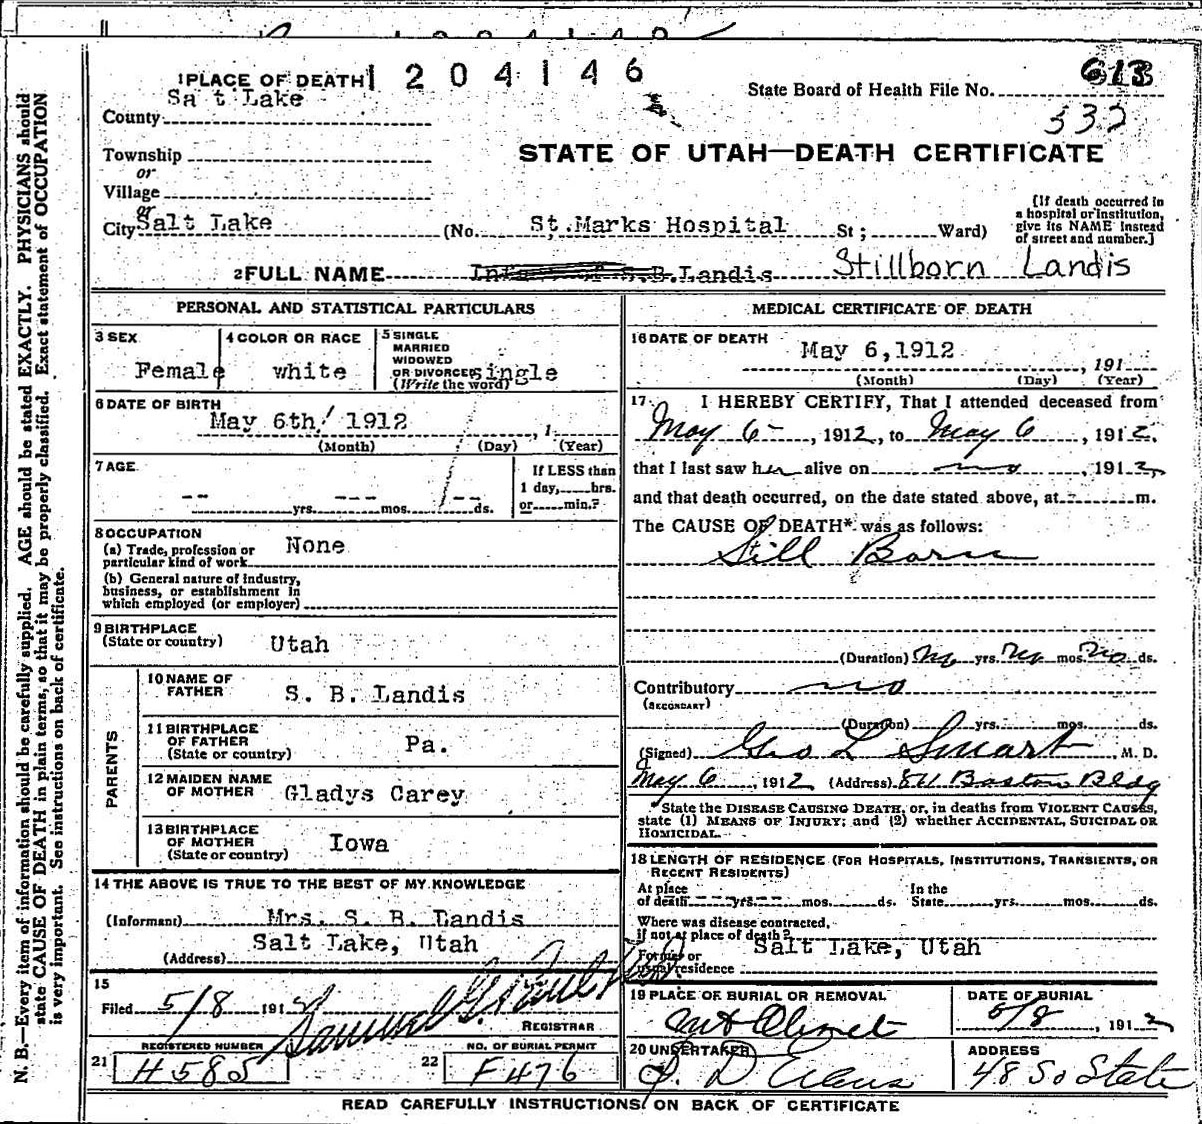 1 PLACE OF DEATH 1204146
State Board of Health File No. 613
532
County Sa t Lake
STATE OF UTAH—DEATH CERTIFICATE
Township
or
Village
or
City Salt Lake (No. St. Marks Hospital St; Ward)
[If death occurred in a hospital or institution, give its NAME instead of street and number.]
2 FULL NAME S.B.Landis Stillborn Landis
PERSONAL AND STATISTICAL PARTICULARS
3 SEX Female
4 COLOR OR RACE white
5 SINGLE MARRIED WIDOWED OR DIVORCED (Write the word) single
6 DATE OF BIRTH May 6th, 1912 , 1
(Month) (Day) (Year)
7 AGE -- yrs. --- mos. -- ds.
If LESS than 1 day, hrs. or min.?
8 OCCUPATION
(a) Trade, profession or particular kind of work None
(b) General nature of industry, business, or establishment in which employed (or employer)
9 BIRTHPLACE (State or country) Utah
PARENTS
10 NAME OF FATHER S. B. Landis
11 BIRTHPLACE OF FATHER (State or country) Pa.
12 MAIDEN NAME OF MOTHER Gladys Carey
13 BIRTHPLACE OF MOTHER (State or country) Iowa
14 THE ABOVE IS TRUE TO THE BEST OF MY KNOWLEDGE
(Informant) Mrs. S. B. Landis
(Address) Salt Lake, Utah
15
Filed 5/8 191
REGISTRAR
REGISTERED NUMBER
21 H585
NO. OF BURIAL PERMIT
22 F476
MEDICAL CERTIFICATE OF DEATH
16 DATE OF DEATH May 6, 1912 , 191
(Month) (Day) (Year)
17. I HEREBY CERTIFY, That I attended deceased from
May 6 , 1912, to May 6 , 1912.
that I last saw her alive on no , 1912
and that death occurred, on the date stated above, at - m.
The CAUSE OF DEATH* was as follows:
Still Born
(Duration) no yrs. no mos. no ds.
Contributory no
(SECONDARY)
(Duration) yrs. mos. ds.
(Signed) Geo L Smart M. D.
May 6 , 1912 (Address) 811 Boston Bldg
State the DISEASE CAUSING DEATH, or, in deaths from VIOLENT CAUSES,
state (1) MEANS OF INJURY; and (2) whether ACCIDENTAL, SUICIDAL OR
HOMICIDAL.
18 LENGTH OF RESIDENCE (FOR HOSPITALS, INSTITUTIONS, TRANSIENTS, OR
RECENT RESIDENTS)
At place of death yrs. mos. ds. In the State yrs. mos. ds.
Where was disease contracted,
if not at place of death?
Former or usual residence Salt Lake, Utah
19 PLACE OF BURIAL OR REMOVAL Mt Olivet
DATE OF BURIAL 5/8 , 1912
20 UNDERTAKER D Evans
ADDRESS 48 So State
READ CAREFULLY INSTRUCTIONS ON BACK OF CERTIFICATE
N. B.—Every item of information should be carefully supplied. AGE should be stated EXACTLY. PHYSICIANS should
state CAUSE OF DEATH in plain terms, so that it may be properly classified. Exact statement of OCCUPATION
is very important. See instructions on back of certificate.